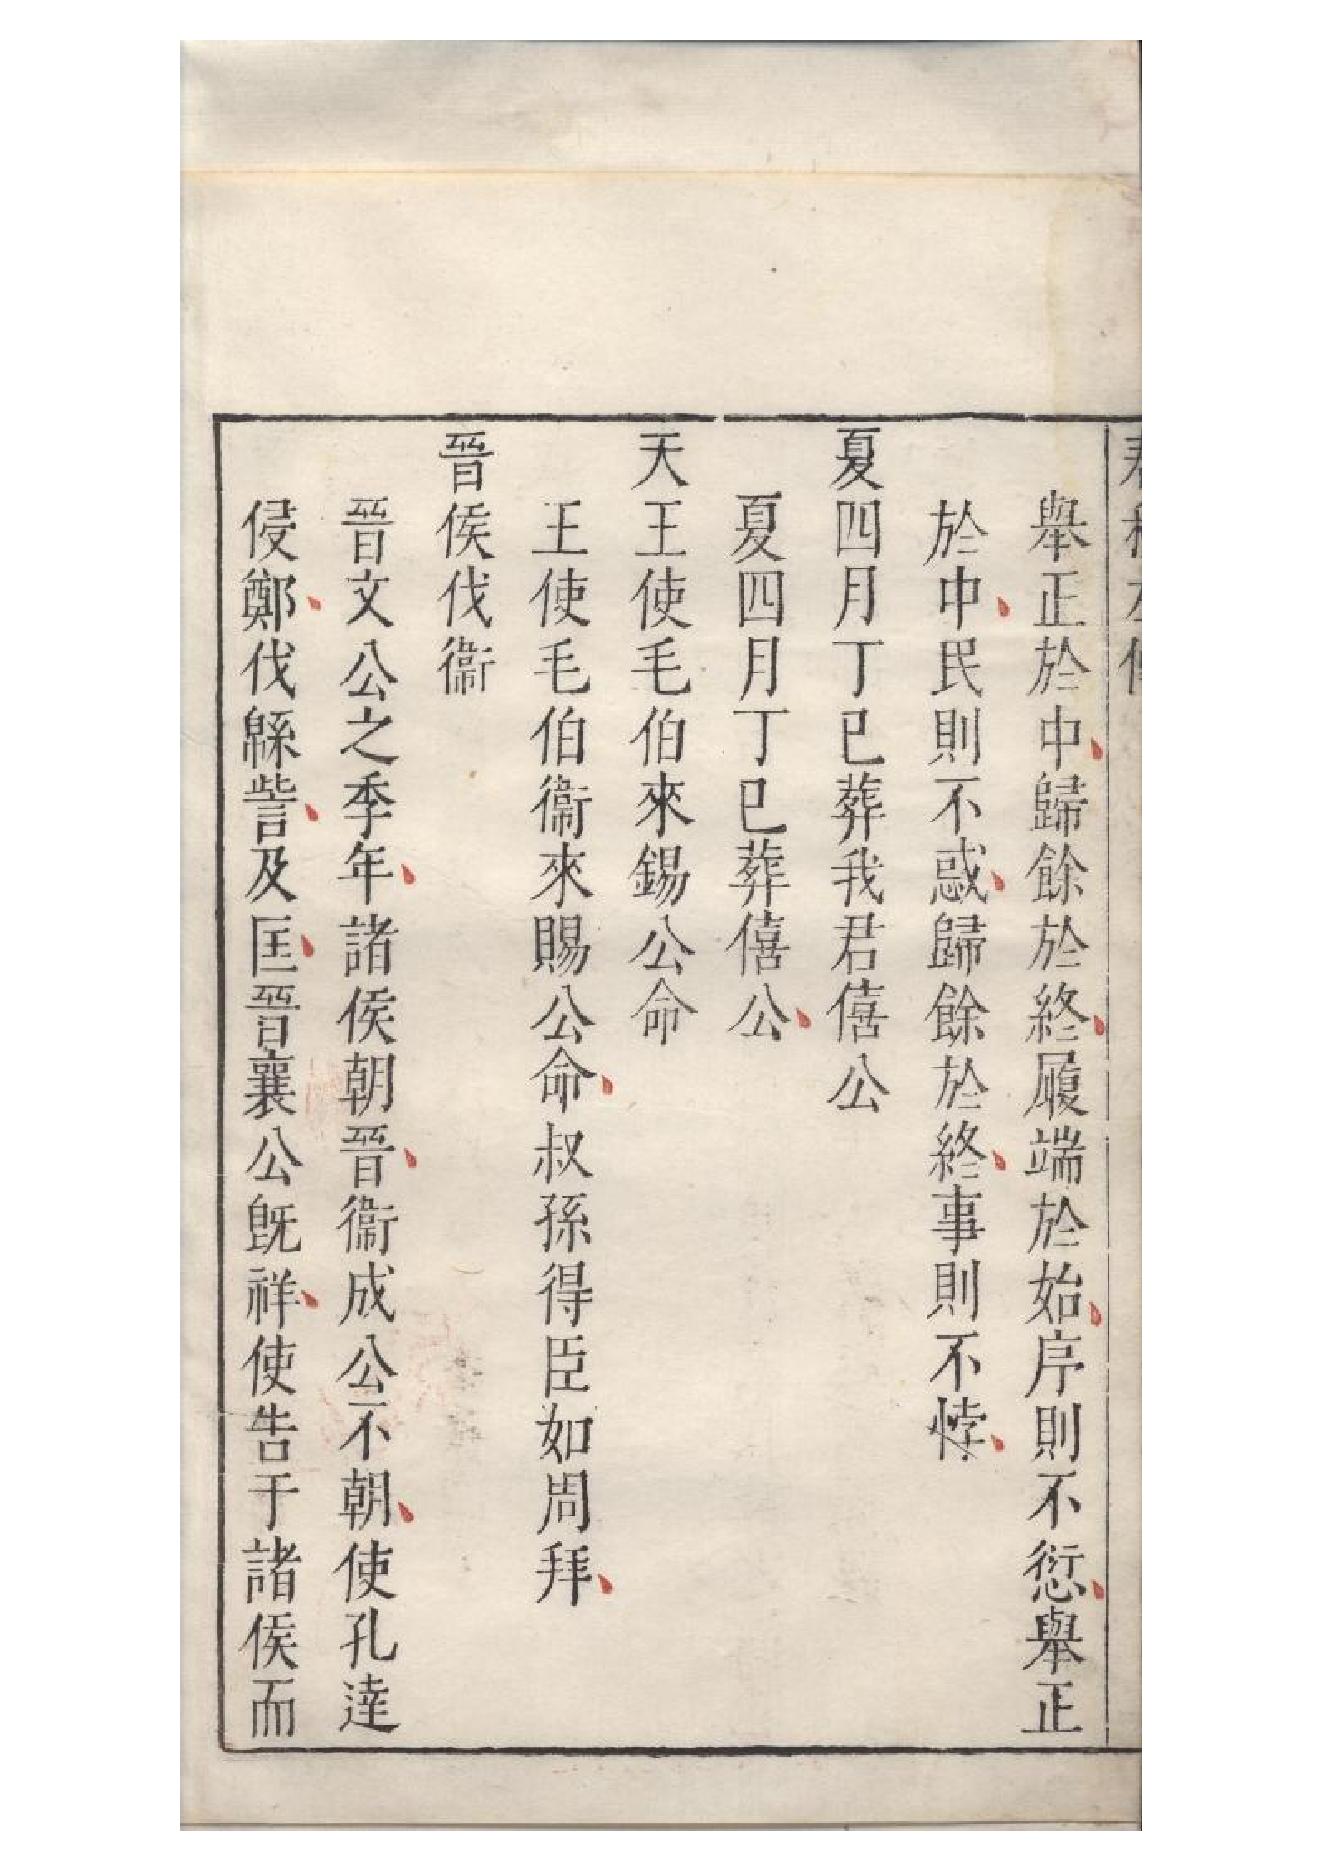 春秋左傳
舉正於中歸餘於終履端於始序則不愆舉正
於中民則不惑歸餘於終事則不悖
夏四月丁巳葬我君僖公
夏四月丁巳葬僖公
天王使毛伯來錫公命
王使毛伯衞來賜公命叔孫得臣如周拜
晉侯伐衞
晉文公之季年諸侯朝晉衞成公不朝使孔達
侵鄭伐緜訾及匡晉襄公旣祥使告于諸侯而